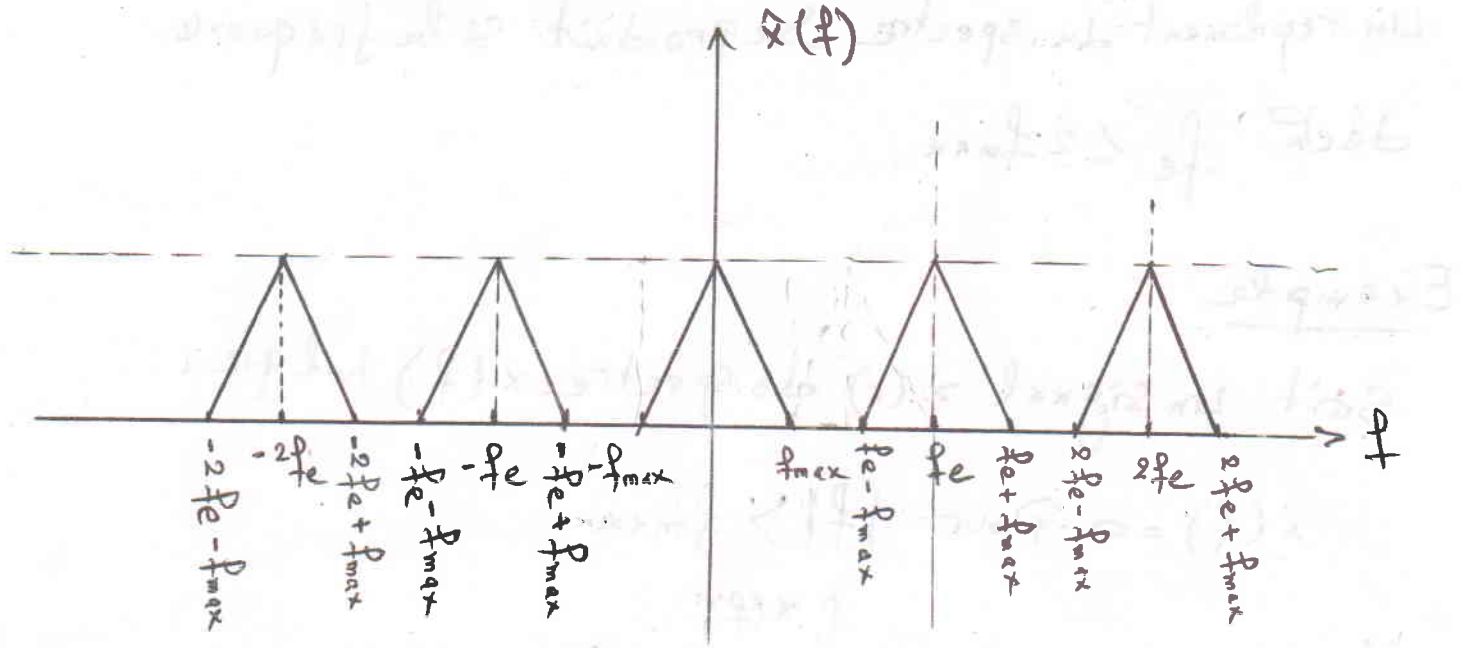 x̂(f)
-2fe-fmax
-2fe
-2fe+fmax
-fe-fmax
-fe
-fe+fmax
-fmax
fmax
fe-fmax
fe
fe+fmax
2fe-fmax
2fe
2fe+fmax
f